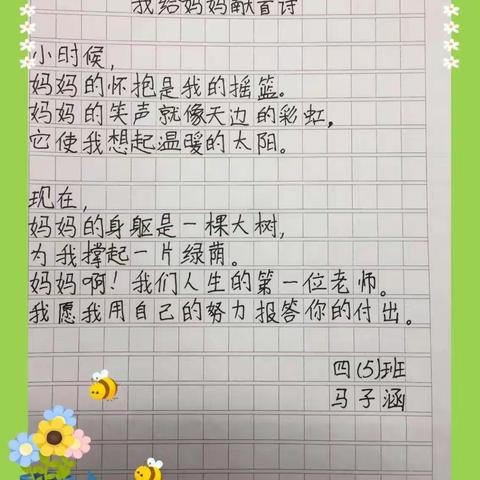 我给妈妈献首诗
小时候，
妈妈的怀抱是我的摇篮。
妈妈的笑声就像天边的彩虹，
它使我想起温暖的太阳。
现在，
妈妈的身躯是一棵大树，
为我撑起一片绿荫。
妈妈啊！我们人生的第一位老师。
我愿我用自己的努力报答你的付出。
四（5）班
马子涵